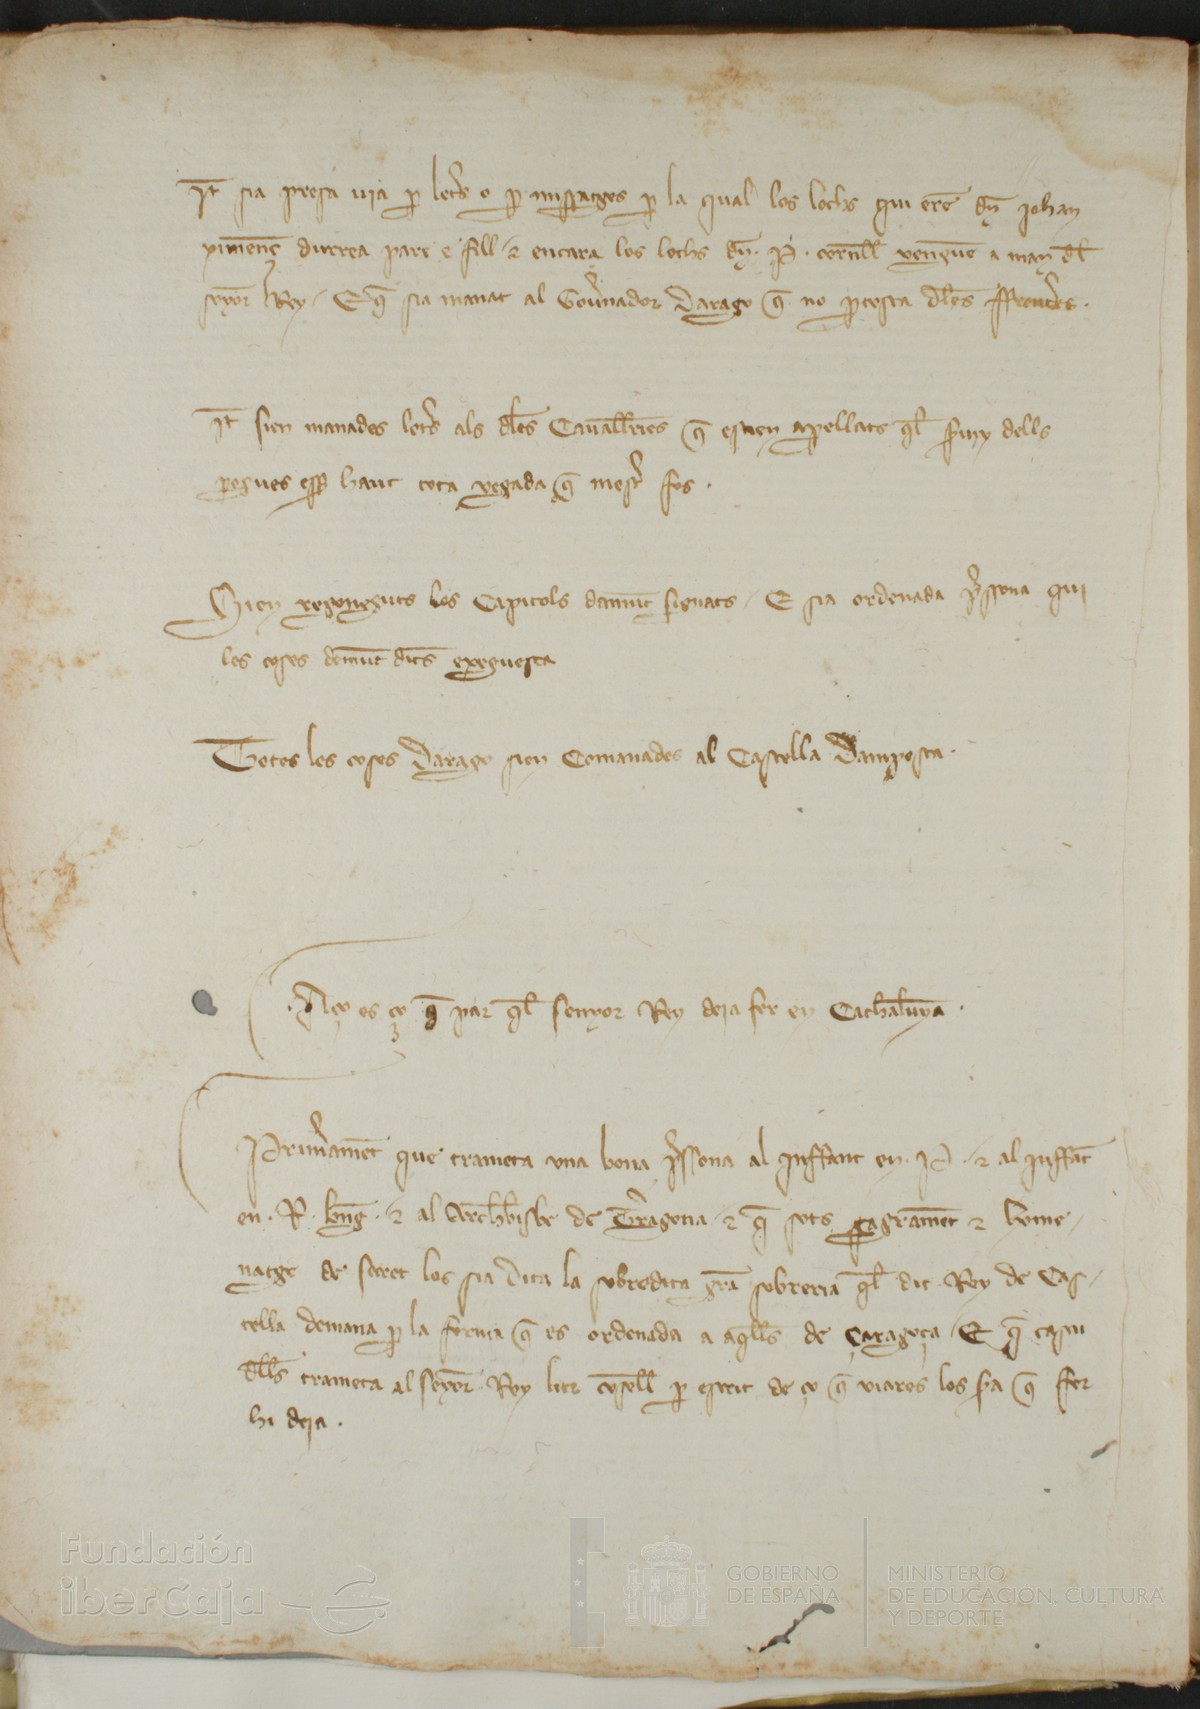 It sia presa via p letrs o p missatges p la qual los lochs qui eren dn Johan
ximenç durrea pare e fill & encara los lochs dn . P . cornell venguen a man dl
senyor Rey / E q sia manat al Governador Darago q no pcesta dles ffrontes .
It sien manades letrs als dles Cavallries q estien apellats ql seny dells
pogues esser haut tota vegada q mest fos .
Sien regoneguts los Capitols damunt signats / E sia ordenada pssona qui
les coses demunt dites exeguesca
Totes les coses Darago sien Comanades al Castella Damposta .
. Aço es ço q par ql senyor Rey deia fer en Cathalunya .
Primerament que trameta una bona pssona al Inffant en . P . & al Inffat
en . R . bng . & al Archebisbe de Tragona & q sots sagrament & home /
natge de secret los sia dita la sobredita gran sobreria ql dit Rey de Cas /
tella demana p la ferma q es ordenada a aqlls de Çaragoça / E q cascu
dlls trameta al senyor Rey lur consell p escrit de ço q viares los sia q ffer
hi deia .
Fundación
iberCaja
GOBIERNO
DE ESPAÑA
MINISTERIO
DE EDUCACIÓN, CULTURA
Y DEPORTE